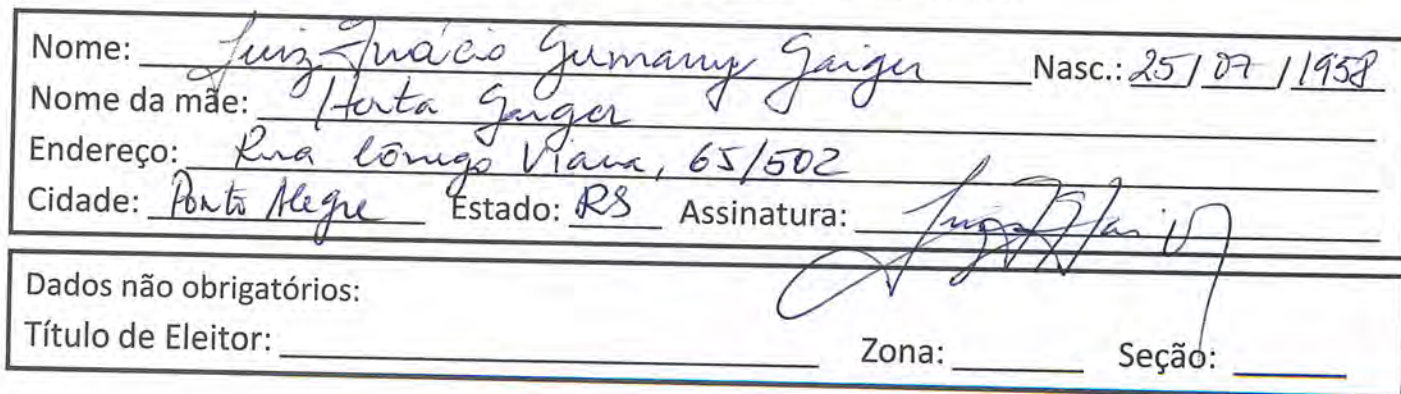 Nome: Luiz Inácio Germany Gaiger Nasc.: 25/07/1958
Nome da mãe: Herta Gaiger
Endereço: Rua Cônego Viana, 65/502
Cidade: Porto Alegre Estado: RS Assinatura:
Dados não obrigatórios:
Título de Eleitor: Zona: Seção: